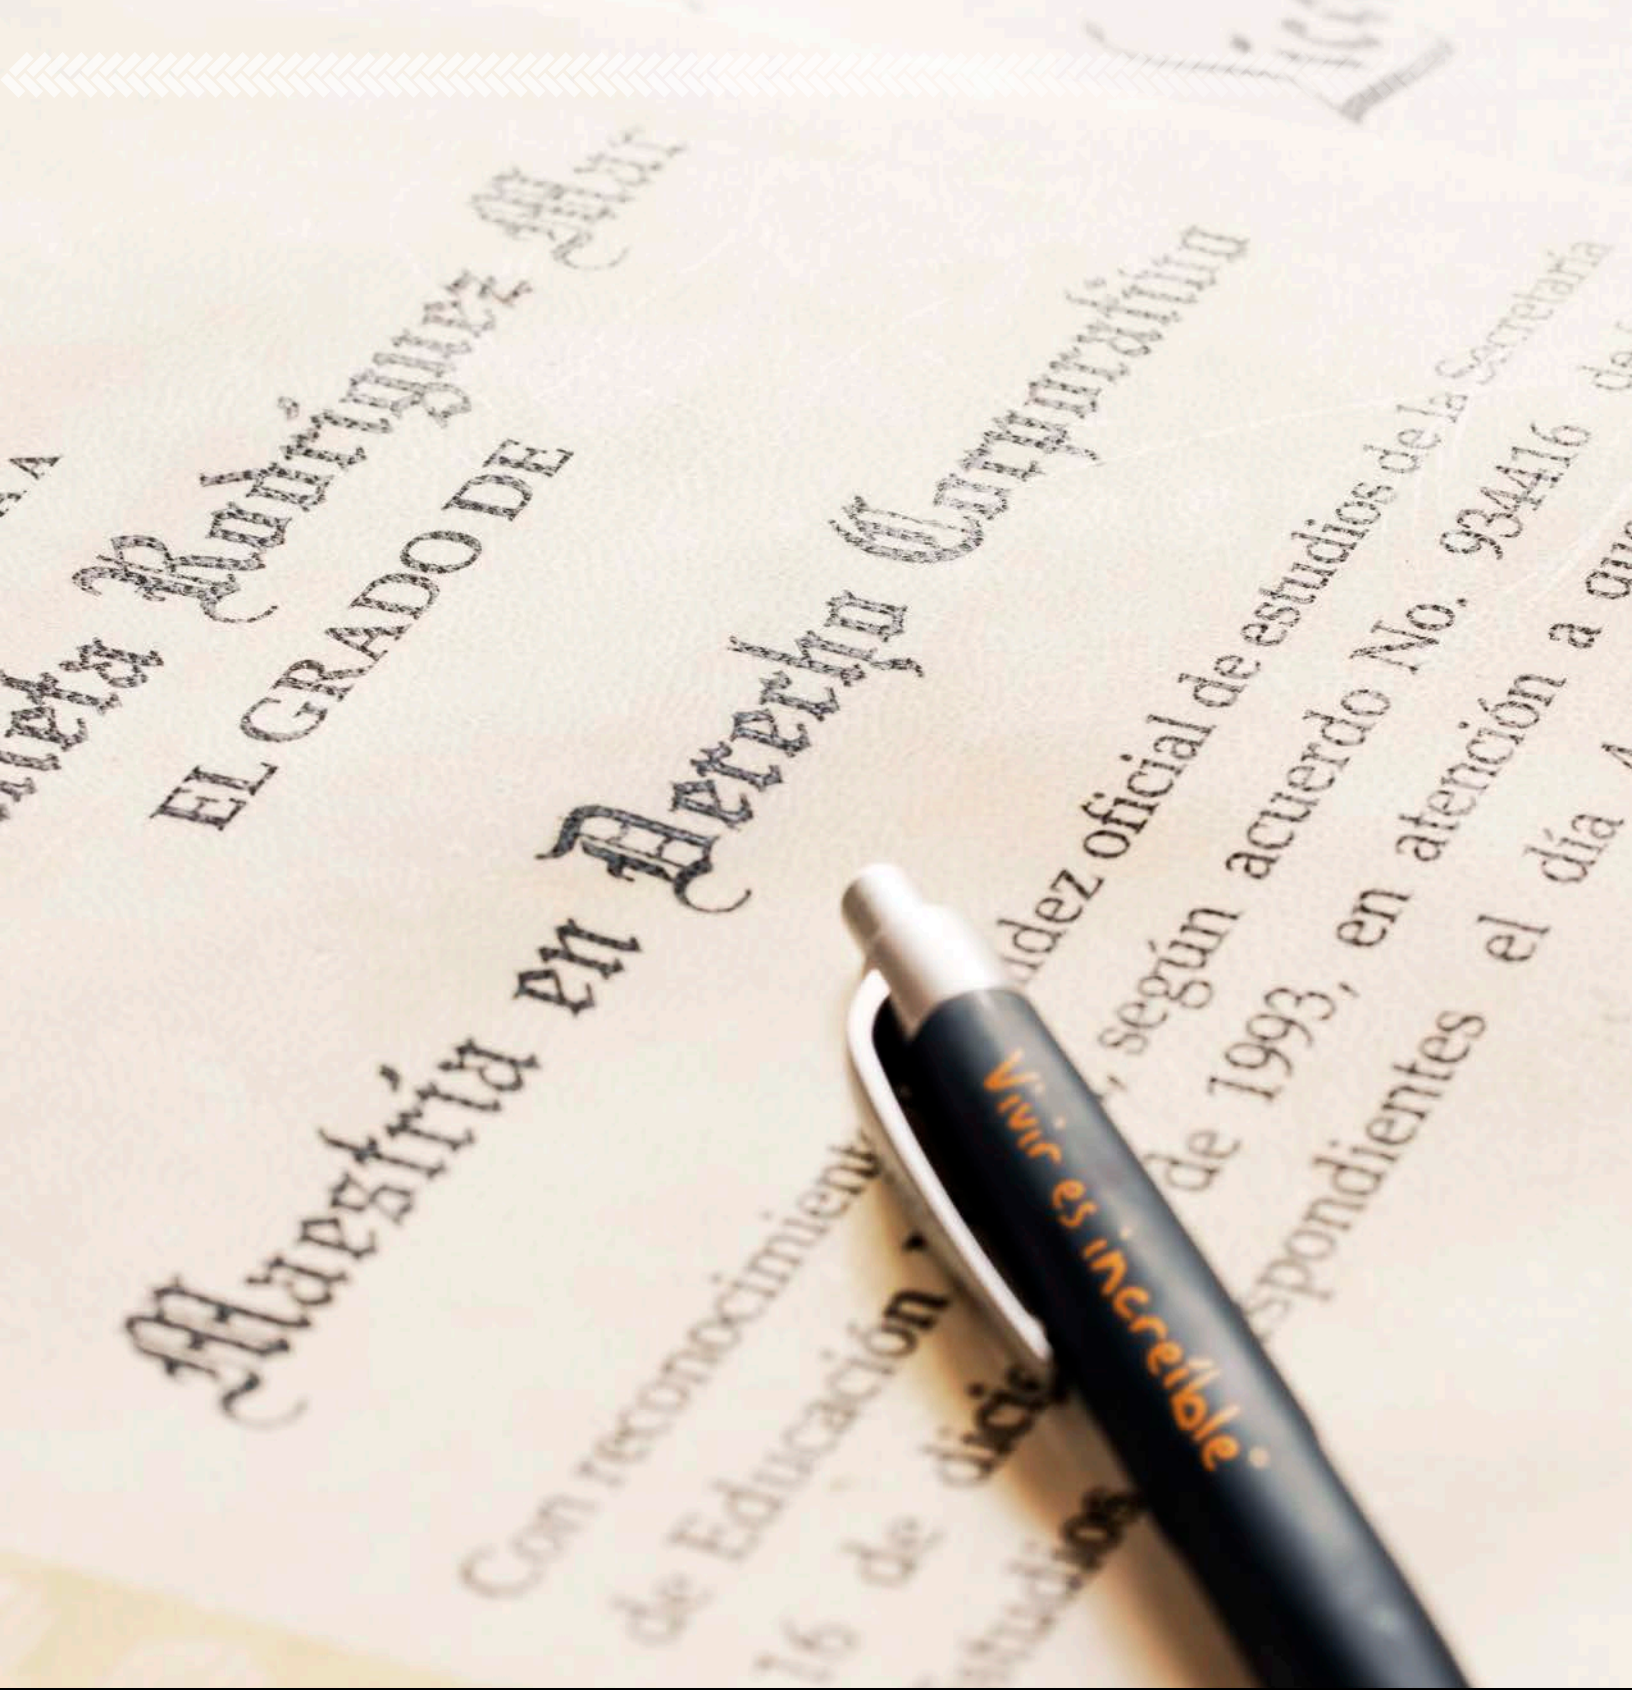 Rodríguez
EL GRADO DE
Maestría en Derecho Corporativo
Con reconocimient idez oficial de estudios de la Secretaría
de Educación , según acuerdo No. 934416 de
16 de dicie de 1993, en atención a que
spondientes el día 4
Vivir es increíble